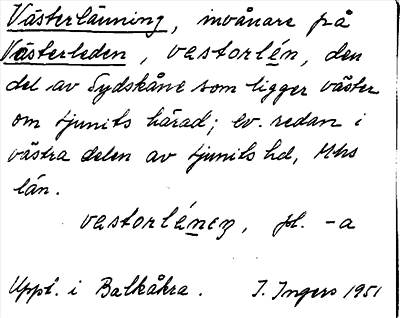 Västerlänning, invånare på
Västerleden, vestorlén, den
del av Sydskåne som ligger väster
om Ljunits härad; ev. redan i
västra delen av Ljunits hd, Mhs
län.
vestorlénıŋ, pl. -a
Uppt. i Balkåkra. I. Ingers 1951